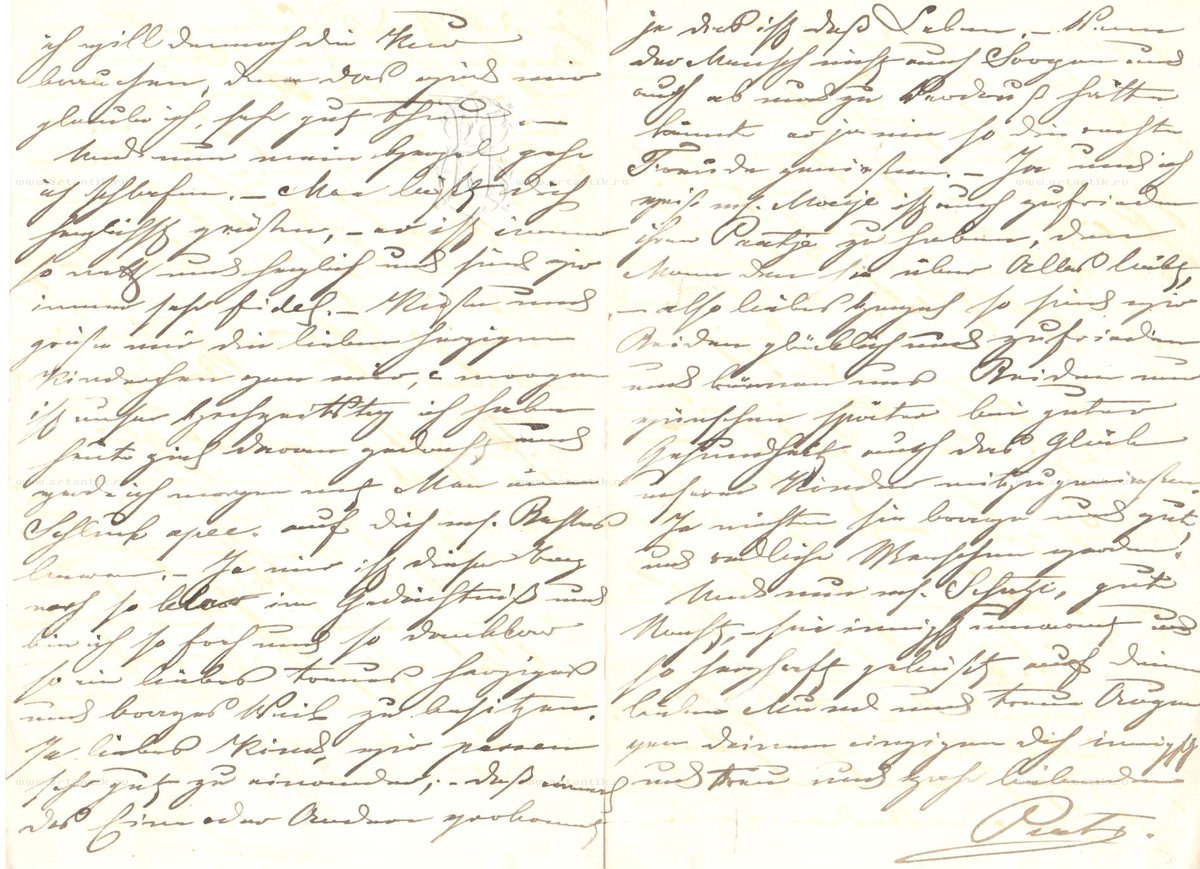 ich will dennoch die Kur
brauchen, denn das wird mir
glaube ich, sehr gut thun. –
Und nun mein Engel gehe
ich schlafen. – Max läßt Dich
herzlichst grüßen, – er ist immer
so nett und herzlich und sind wir
immer sehr fidel. – Küsse und
grüße mir die lieben herzigen
Kinderchen von mir, morgen
ist unser Hochzeitstag ich habe
heute viel daran gedacht und
werde ich morgen mit Max einen
Schluck auf Dich m. Bestes
leeren. – Ja mir ist dieser Tag
noch so klar im Gedächtniß und
bin ich so froh und so dankbar
so ein liebes treues herziges
und braves Weib zu besitzen.
Ja liebes Kind, wir passen
sehr gut zu einander; – daß einmal
das Eine oder Andere vorkommt
ja das ist das Leben. – Wenn
der Mensch nicht auch Sorgen und
auch ab und zu Verdruß hätte
könnte er ja nie so die rechte
Freude genießen. – Ja und ich
weiß m. Mütze ist auch zufrieden
ihren zu haben, den
Mann den sie über Alles liebt,
– also liebes so sind wir
Beiden glücklich und zufrieden
und können uns Beiden nur
wünschen später bei guter
Gesundheit auch das Glück
unserer Kinder mitzugenießen
Ja möchten sie brave und gute
und redliche Menschen werden.
Und nun m. Schatzi, gute
Nacht, – sei innigst umarmt und
so herzhaft geküßt auf Deinen
lieben Mund und treue Augen
von Deinem einzigen Dich innigst
und treu und liebenden